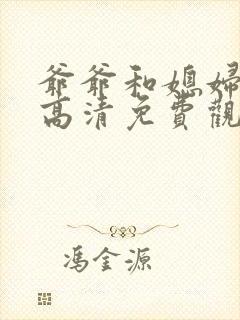 爺爺和媳婦
高清免費觀
馮金源